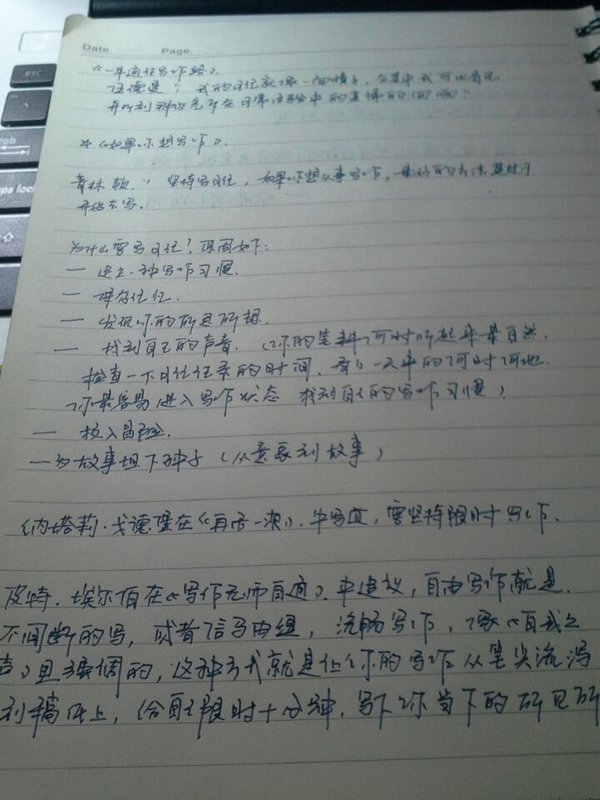 esc
tab
caps lock
Date Page.
《一年通往写作路》.
我的日记就像一面镜子,在其中我可以看见
并找到那些充斥在日常经验中的
*《如果你想写作》.
坚持写日记,如果你想从事写作,最好的方法
开始去写.
为什么要写日记?理由如下:
— 建立一种写作习惯.
— 保存记忆.
— 发现你的所思所想.
— 找到自己的声音.(你的笔调何时听起来最自然.
检查一下日记记录的时间,看看一天中的何时何地
你最容易进入写作状态 找到自己的写作习惯)
— 投入冒险.
— 为故事埋下种子(从意象到故事)
《内塔莉·戈德堡在《再活一次》.中写道,要坚持限时写作.
皮特.埃尔伯在《写作无师自通》.中建议,自由写作就是.
不间断的写,或者信马由缰,流畅写作,像《自我之
声》里强调的,这种方式就是让你的写作从笔尖流泻
到稿纸上,给自己限时十分钟,写下你当下的所见所